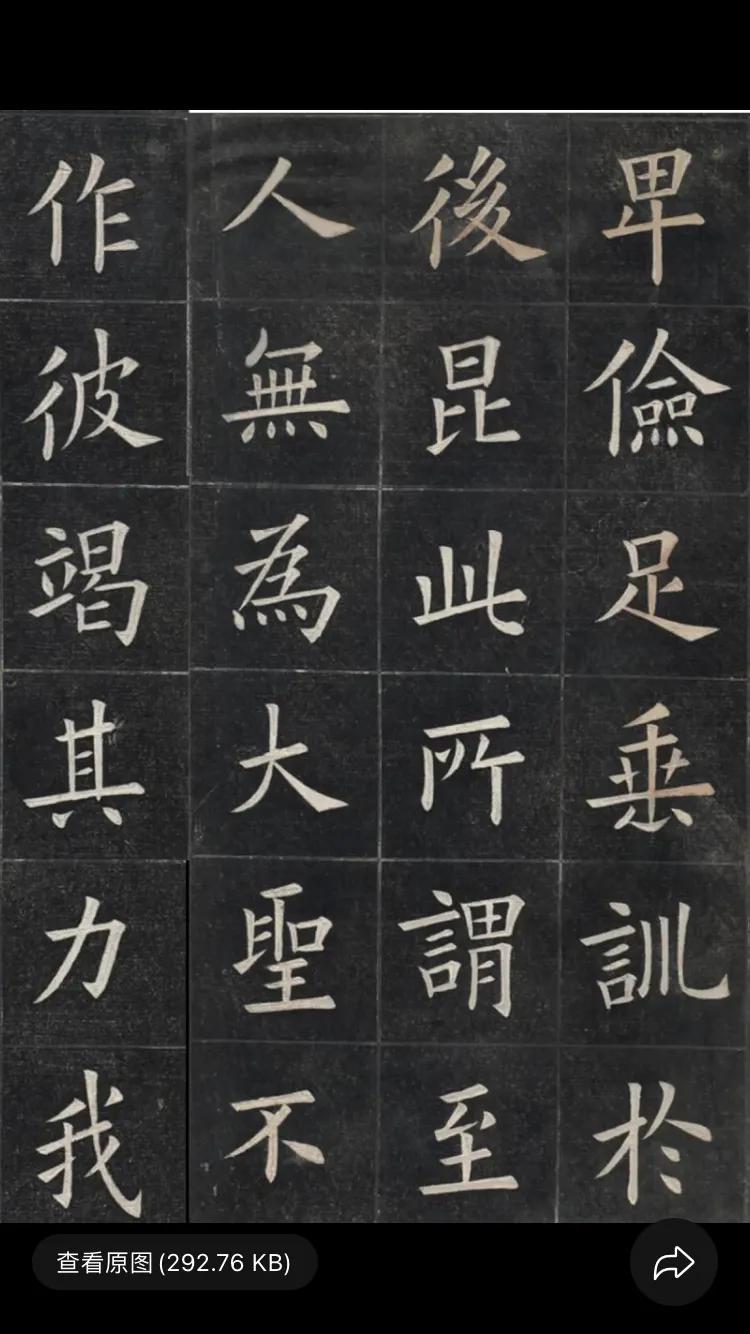 卑儉足垂訓於
後昆此所謂至
人無為大聖不
作彼竭其力我
查看原图(292.76 KB)